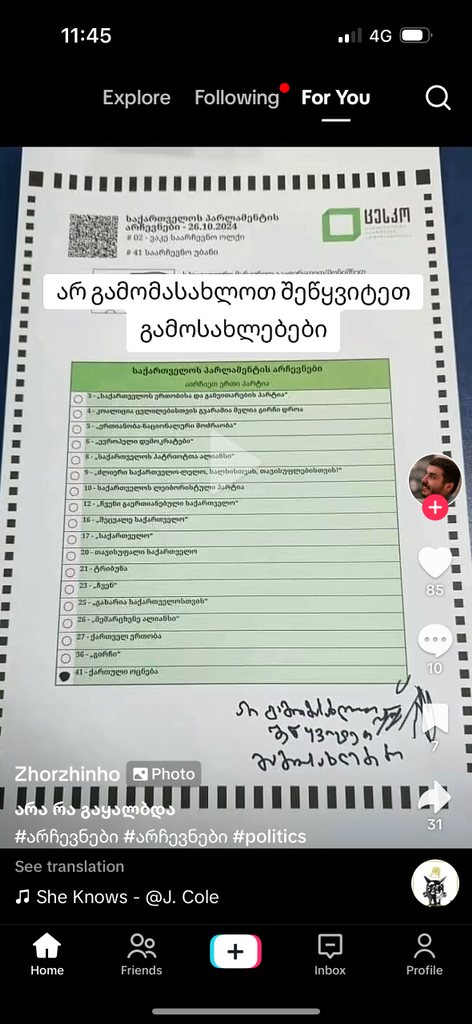 11:45
4G
Explore Following For You
საქართველოს პარლამენტის
არჩევნები - 26.10.2024
# 02 - ვაკე საარჩევნო ოლქი
# 41 საარჩევნო უბანი
ცესკო
არ გამომასახლოთ შეწყვიტეთ
გამოსახლებები
საქართველოს პარლამენტის არჩევნები
აირჩიეთ ერთი პარტია
3 - „საქართველოს ერთობისა და განვითარების პარტია“
4 - კოალიცია ცვლილებისთვის გვარამია მელია გირჩი დროა
5 - „ერთიანობა-ნაციონალური მოძრაობა“
6 - „ევროპული დემოკრატები“
8 - „საქართველოს პატრიოტთა ალიანსი“
9 - „ძლიერი საქართველო-ლელო, ხალხისთვის, თავისუფლებისთვის!“
10 - საქართველოს ლეიბორისტული პარტია
12 - „ჩვენი გაერთიანებული საქართველო“
16 - „შეცვალე საქართველო“
17 - „საქართველო“
20 - თავისუფალი საქართველო
21 - ტრიბუნა
23 - „ჩვენ“
25 - „გახარია საქართველოსთვის“
26 - „მემარცხენე ალიანსი“
27 - ქართველ ერთობა
36 - „გირჩი“
41 - ქართული ოცნება
არ გამომასახლოთ
შეწყვიტეთ
გამოსახლებები
85
10
7
31
Zhorzhinho Photo
არა რა გაყალბდა
#არჩევნები #არჩევნები #politics
See translation
She Knows - @J. Cole
Home Friends Inbox Profile